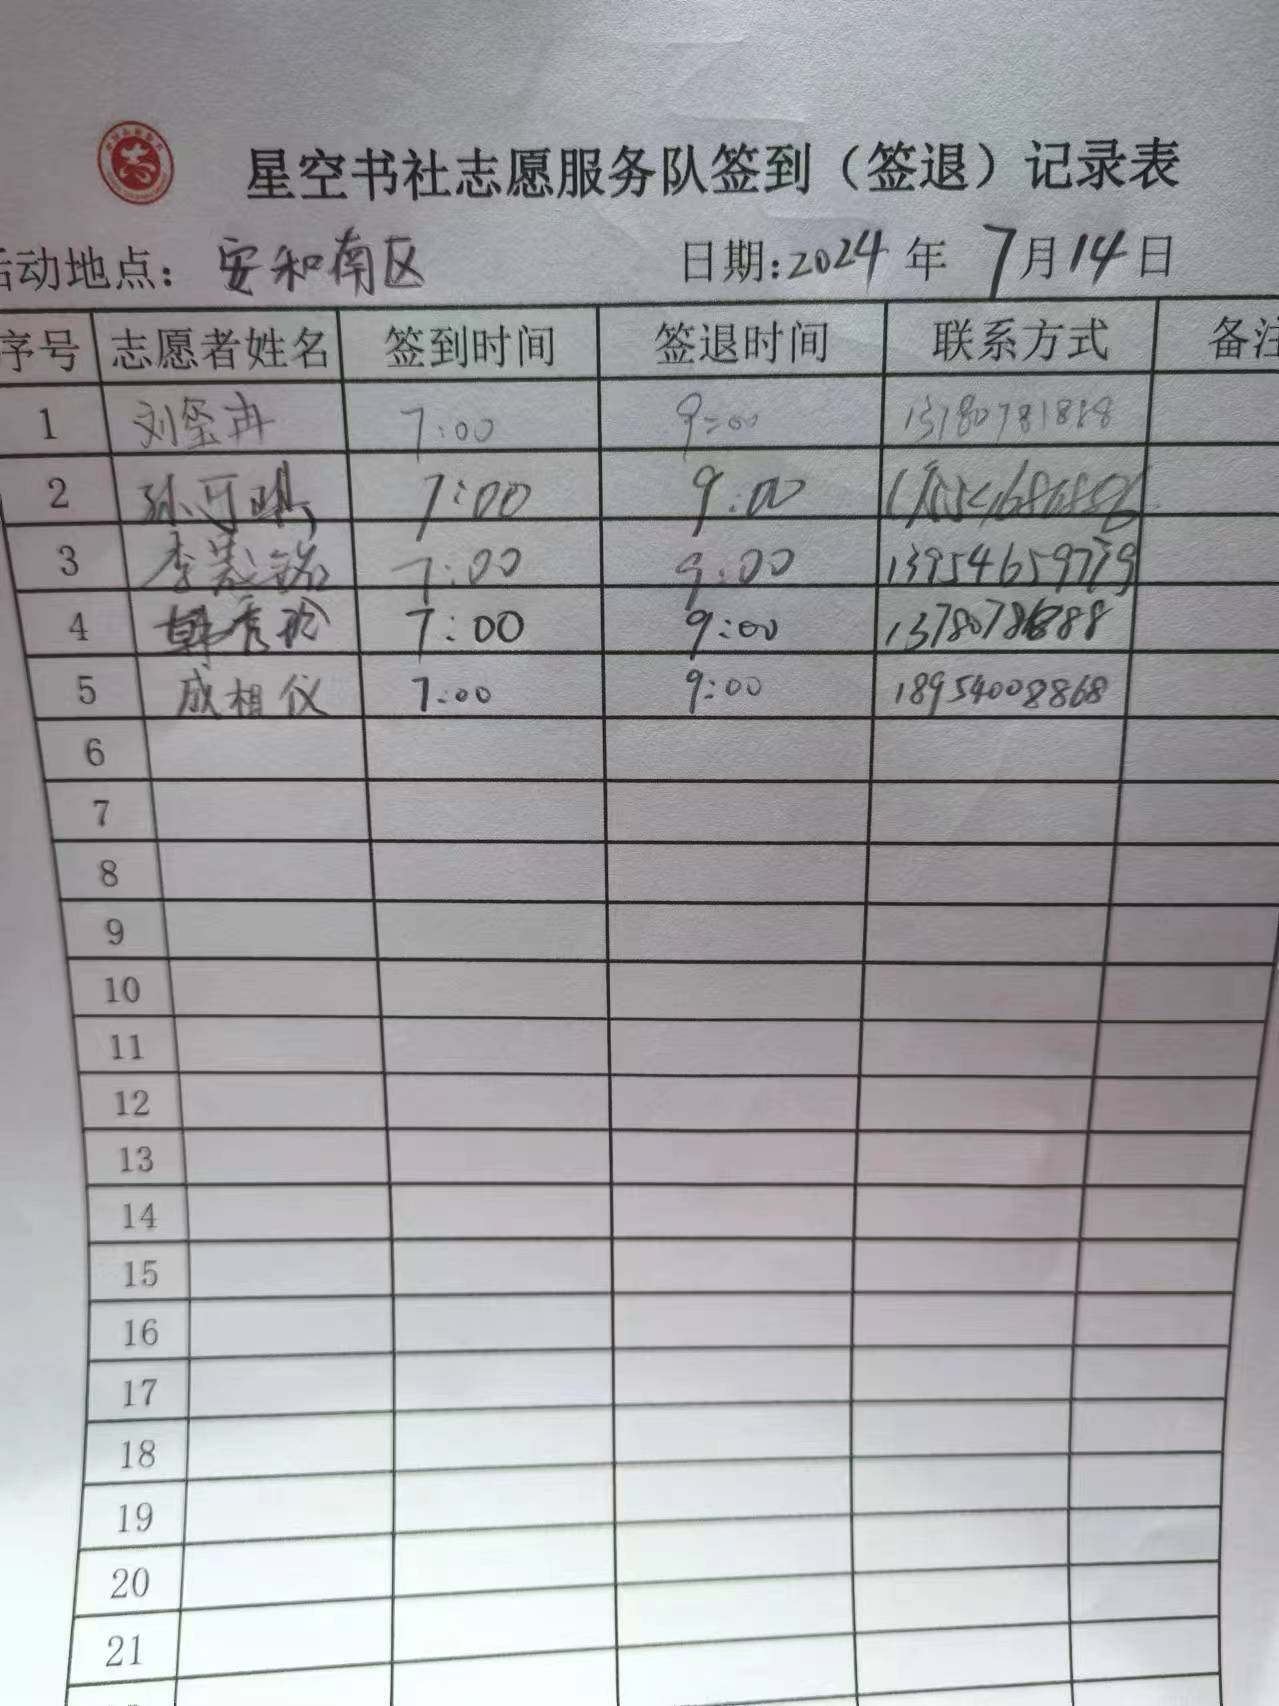 星空书社志愿服务队签到（签退）记录表
活动地点：安和南区 日期:2024年7月14日
序号 志愿者姓名 签到时间 签退时间 联系方式 备注
1 刘玺冉 7:00 9:00 13780781888
2 孙可 7:00 9:00
3 李 铭 7:00 9:00 13954659779
4 韩秀玲 7:00 9:00
5 成相仪 7:00 9:00 18954008868
6
7
8
9
10
11
12
13
14
15
16
17
18
19
20
21